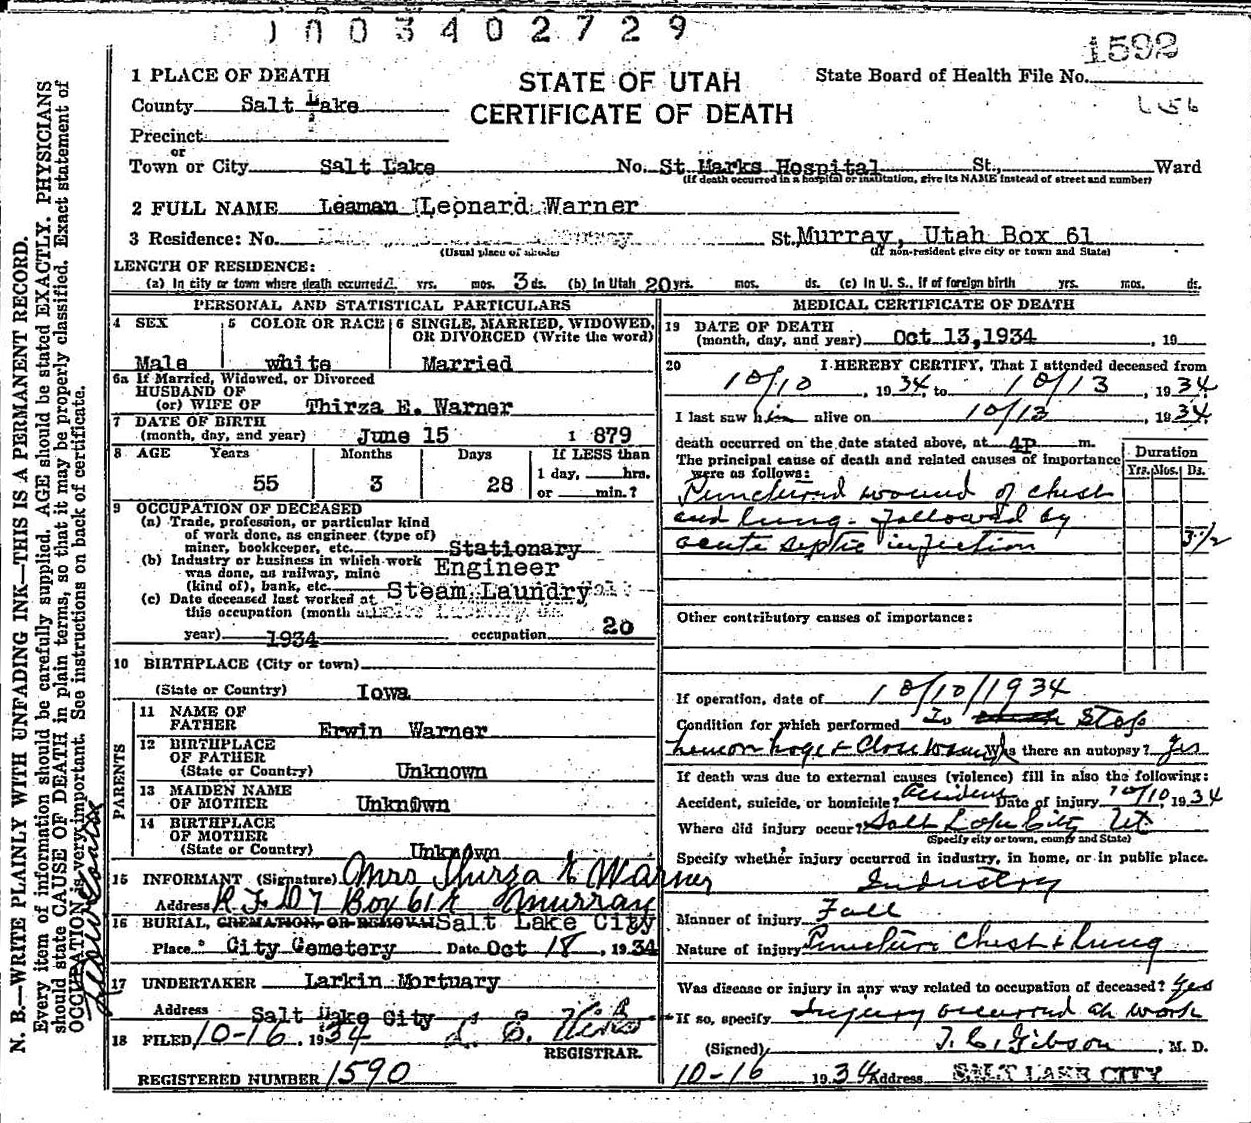 1003402729
1592
1 PLACE OF DEATH
STATE OF UTAH
State Board of Health File No.
County Salt Lake
CERTIFICATE OF DEATH
Precinct
or
Town or City Salt Lake No. St Marks Hospital St., Ward
(If death occurred in a hospital or institution, give its NAME instead of street and number)
2 FULL NAME Leaman Leonard Warner
3 Residence: No. St. Murray, Utah Box 61
(Usual place of abode) (If non-resident give city or town and State)
LENGTH OF RESIDENCE:
(a) In city or town where death occurred yrs. mos. 3 ds. (b) In Utah 20 yrs. mos. ds. (c) In U. S., if of foreign birth yrs. mos. ds.
PERSONAL AND STATISTICAL PARTICULARS
4 SEX 5 COLOR OR RACE 6 SINGLE, MARRIED, WIDOWED, OR DIVORCED (Write the word)
Male white Married
6a If Married, Widowed, or Divorced
HUSBAND OF
(or) WIFE OF Thirza E. Warner
7 DATE OF BIRTH
(month, day, and year) June 15 1 879
8 AGE Years Months Days If LESS than
1 day, hrs.
55 3 28 or min.?
9 OCCUPATION OF DECEASED
(a) Trade, profession, or particular kind
of work done, as engineer (type of)
miner, bookkeeper, etc. Stationary
(b) Industry or business in which work Engineer
was done, as railway, mine
(kind of), bank, etc. Steam Laundry
(c) Date deceased last worked at
this occupation (month
year) 1934 occupation 20
10 BIRTHPLACE (City or town)
(State or Country) Iowa
PARENTS
11 NAME OF
FATHER Erwin Warner
12 BIRTHPLACE
OF FATHER
(State or Country) Unknown
13 MAIDEN NAME
OF MOTHER Unknown
14 BIRTHPLACE
OF MOTHER
(State or Country) Unknown
15 INFORMANT (Signature) Mrs Thirza E Warner
Address R F D 7 Box 61 Murray
16 BURIAL, CREMATION, OR REMOVAL Salt Lake City
Place City Cemetery Date Oct 18, 1934
17 UNDERTAKER Larkin Mortuary
Address Salt Lake City
18 FILED 10-16 1934
REGISTRAR.
REGISTERED NUMBER 1590
MEDICAL CERTIFICATE OF DEATH
19 DATE OF DEATH
(month, day, and year) Oct 13, 1934, 19
20 I HEREBY CERTIFY, That I attended deceased from
10/10, 1934, to 10/13, 1934.
I last saw him alive on 10/13 1934.
death occurred on the date stated above, at 4P m.
The principal cause of death and related causes of importance
were as follows:
Duration
Yrs. Mos. Ds.
Punctured wound of chest
and lung. followed by
acute septic infection 3 1/2
Other contributory causes of importance:
If operation, date of 10/10/1934
Condition for which performed To Stop
hemorrhage & Close wound Was there an autopsy? Yes
If death was due to external causes (violence) fill in also the following:
Accident, suicide, or homicide? Accident Date of injury 10/10, 1934
Where did injury occur? Salt Lake City Ut
(Specify city or town, county and State)
Specify whether injury occurred in industry, in home, or in public place.
Industry
Manner of injury Fall
Nature of injury Puncture Chest & Lung
Was disease or injury in any way related to occupation of deceased? Yes
If so, specify Injury occurred at work
(Signed) T. C. Gibson, M. D.
10-16 1934 Address SALT LAKE CITY
N. B.—WRITE PLAINLY WITH UNFADING INK—THIS IS A PERMANENT RECORD.
Every item of information should be carefully supplied. AGE should be stated EXACTLY. PHYSICIANS
should state CAUSE OF DEATH in plain terms, so that it may be properly classified. Exact statement of
OCCUPATION is very important. See instructions on back of certificate.